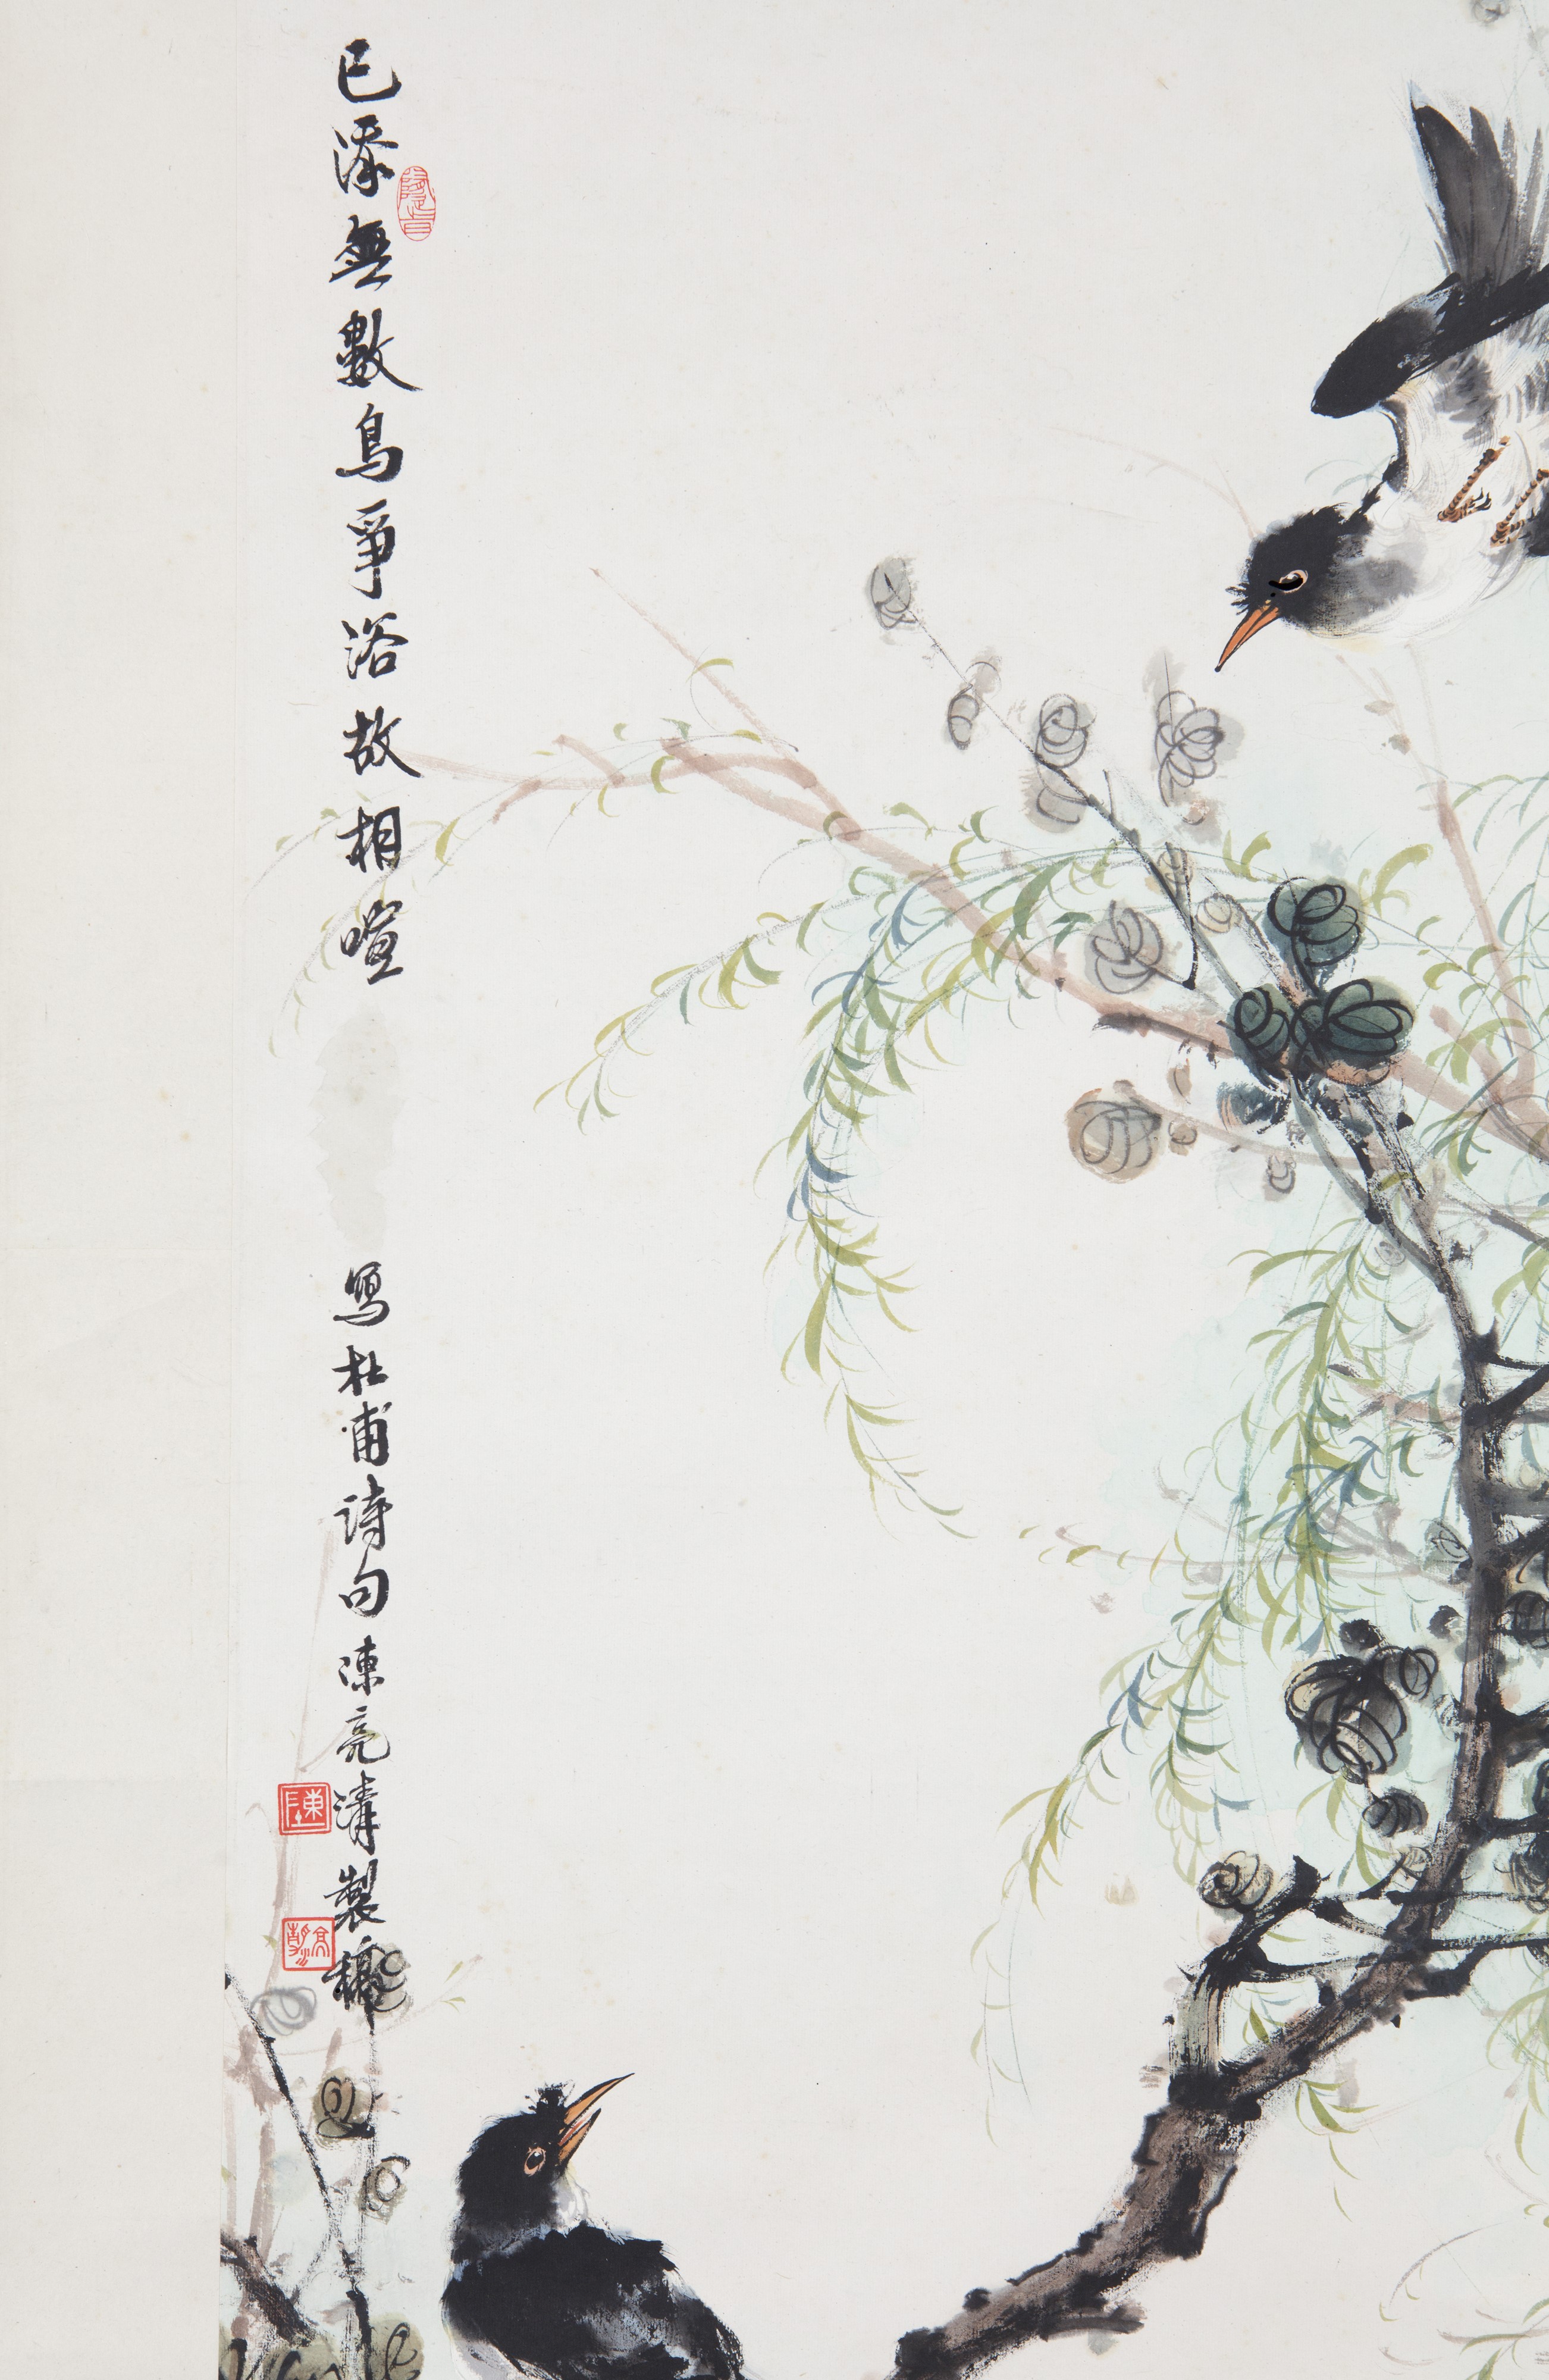 已添無數鳥爭浴故相喧 寫杜甫詩句 陳亮清製
陳